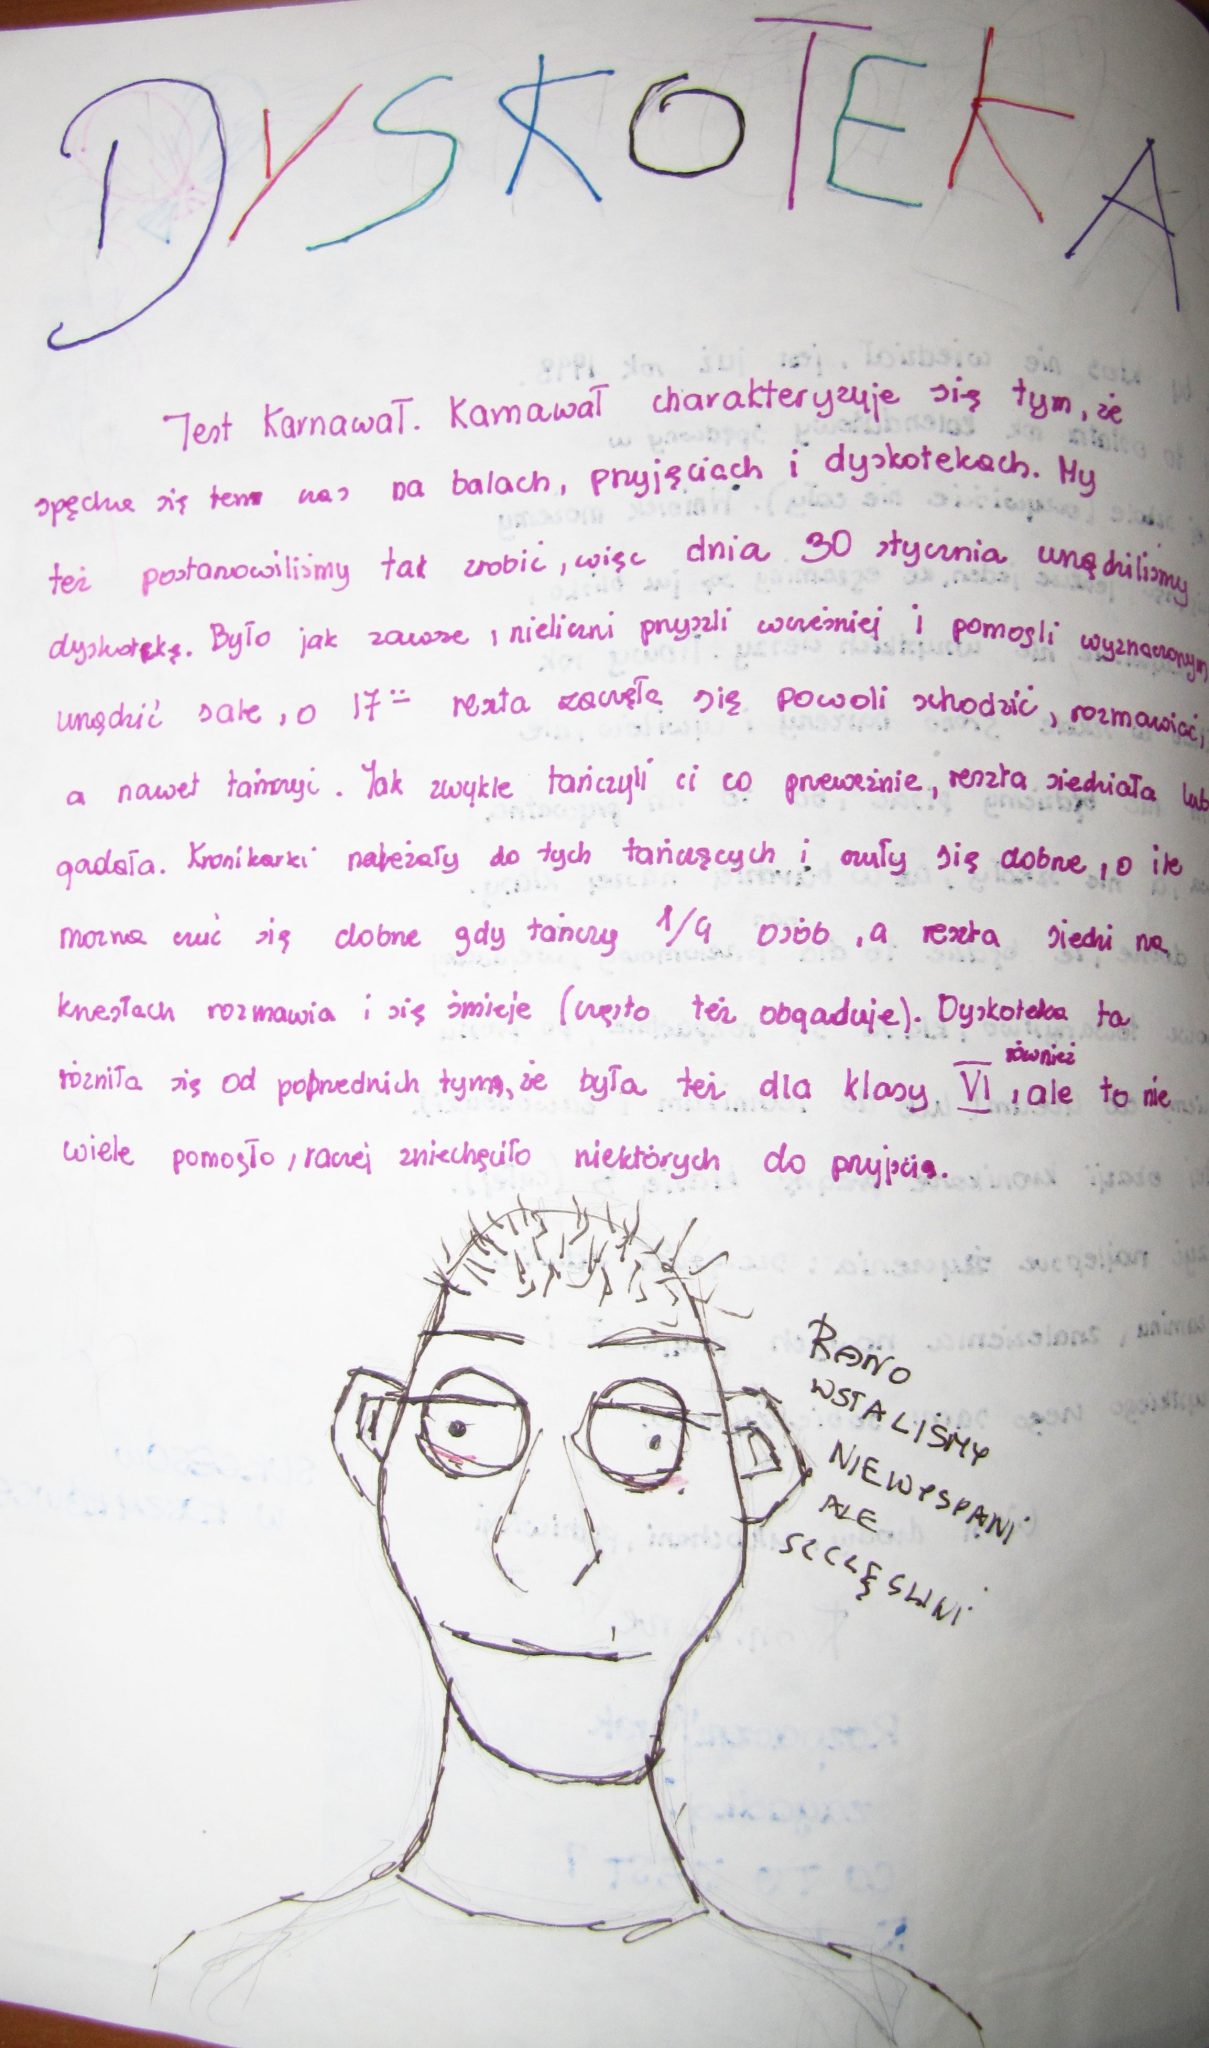 DYSKOTEKA
Jest Karnawał. Karnawał charakteryzuje się tym, że
spędza się ten czas na balach, przyjęciach i dyskotekach. My
też postanowiliśmy tak zrobić, więc dnia 30 stycznia urządziliśmy
dyskotekę. Było jak zawsze, nieliczni przyszli wcześniej i pomogli wyznaczonym
urządzić sale, o 17 reszta zaczęła się powoli schodzić, rozmawiać,
a nawet tańczyć. Jak zwykle tańczyli ci co przeważnie, reszta siedziała lub
gadała. Kronikarki należały do tych tańczących i czuły się dobrze, o ile
można czuć się dobrze gdy tańczy 1/4 osób, a reszta siedzi na
krzesłach rozmawia i się śmieje (często też obgaduje). Dyskoteka ta
również
różniła się od poprzednich tym, że była też dla klasy VI, ale to nie
wiele pomogło, raczej zniechęciło niektórych do przyjścia.
RANO
WSTALIŚMY
NIEWYSPANI
ALE
SZCZĘŚLIWI